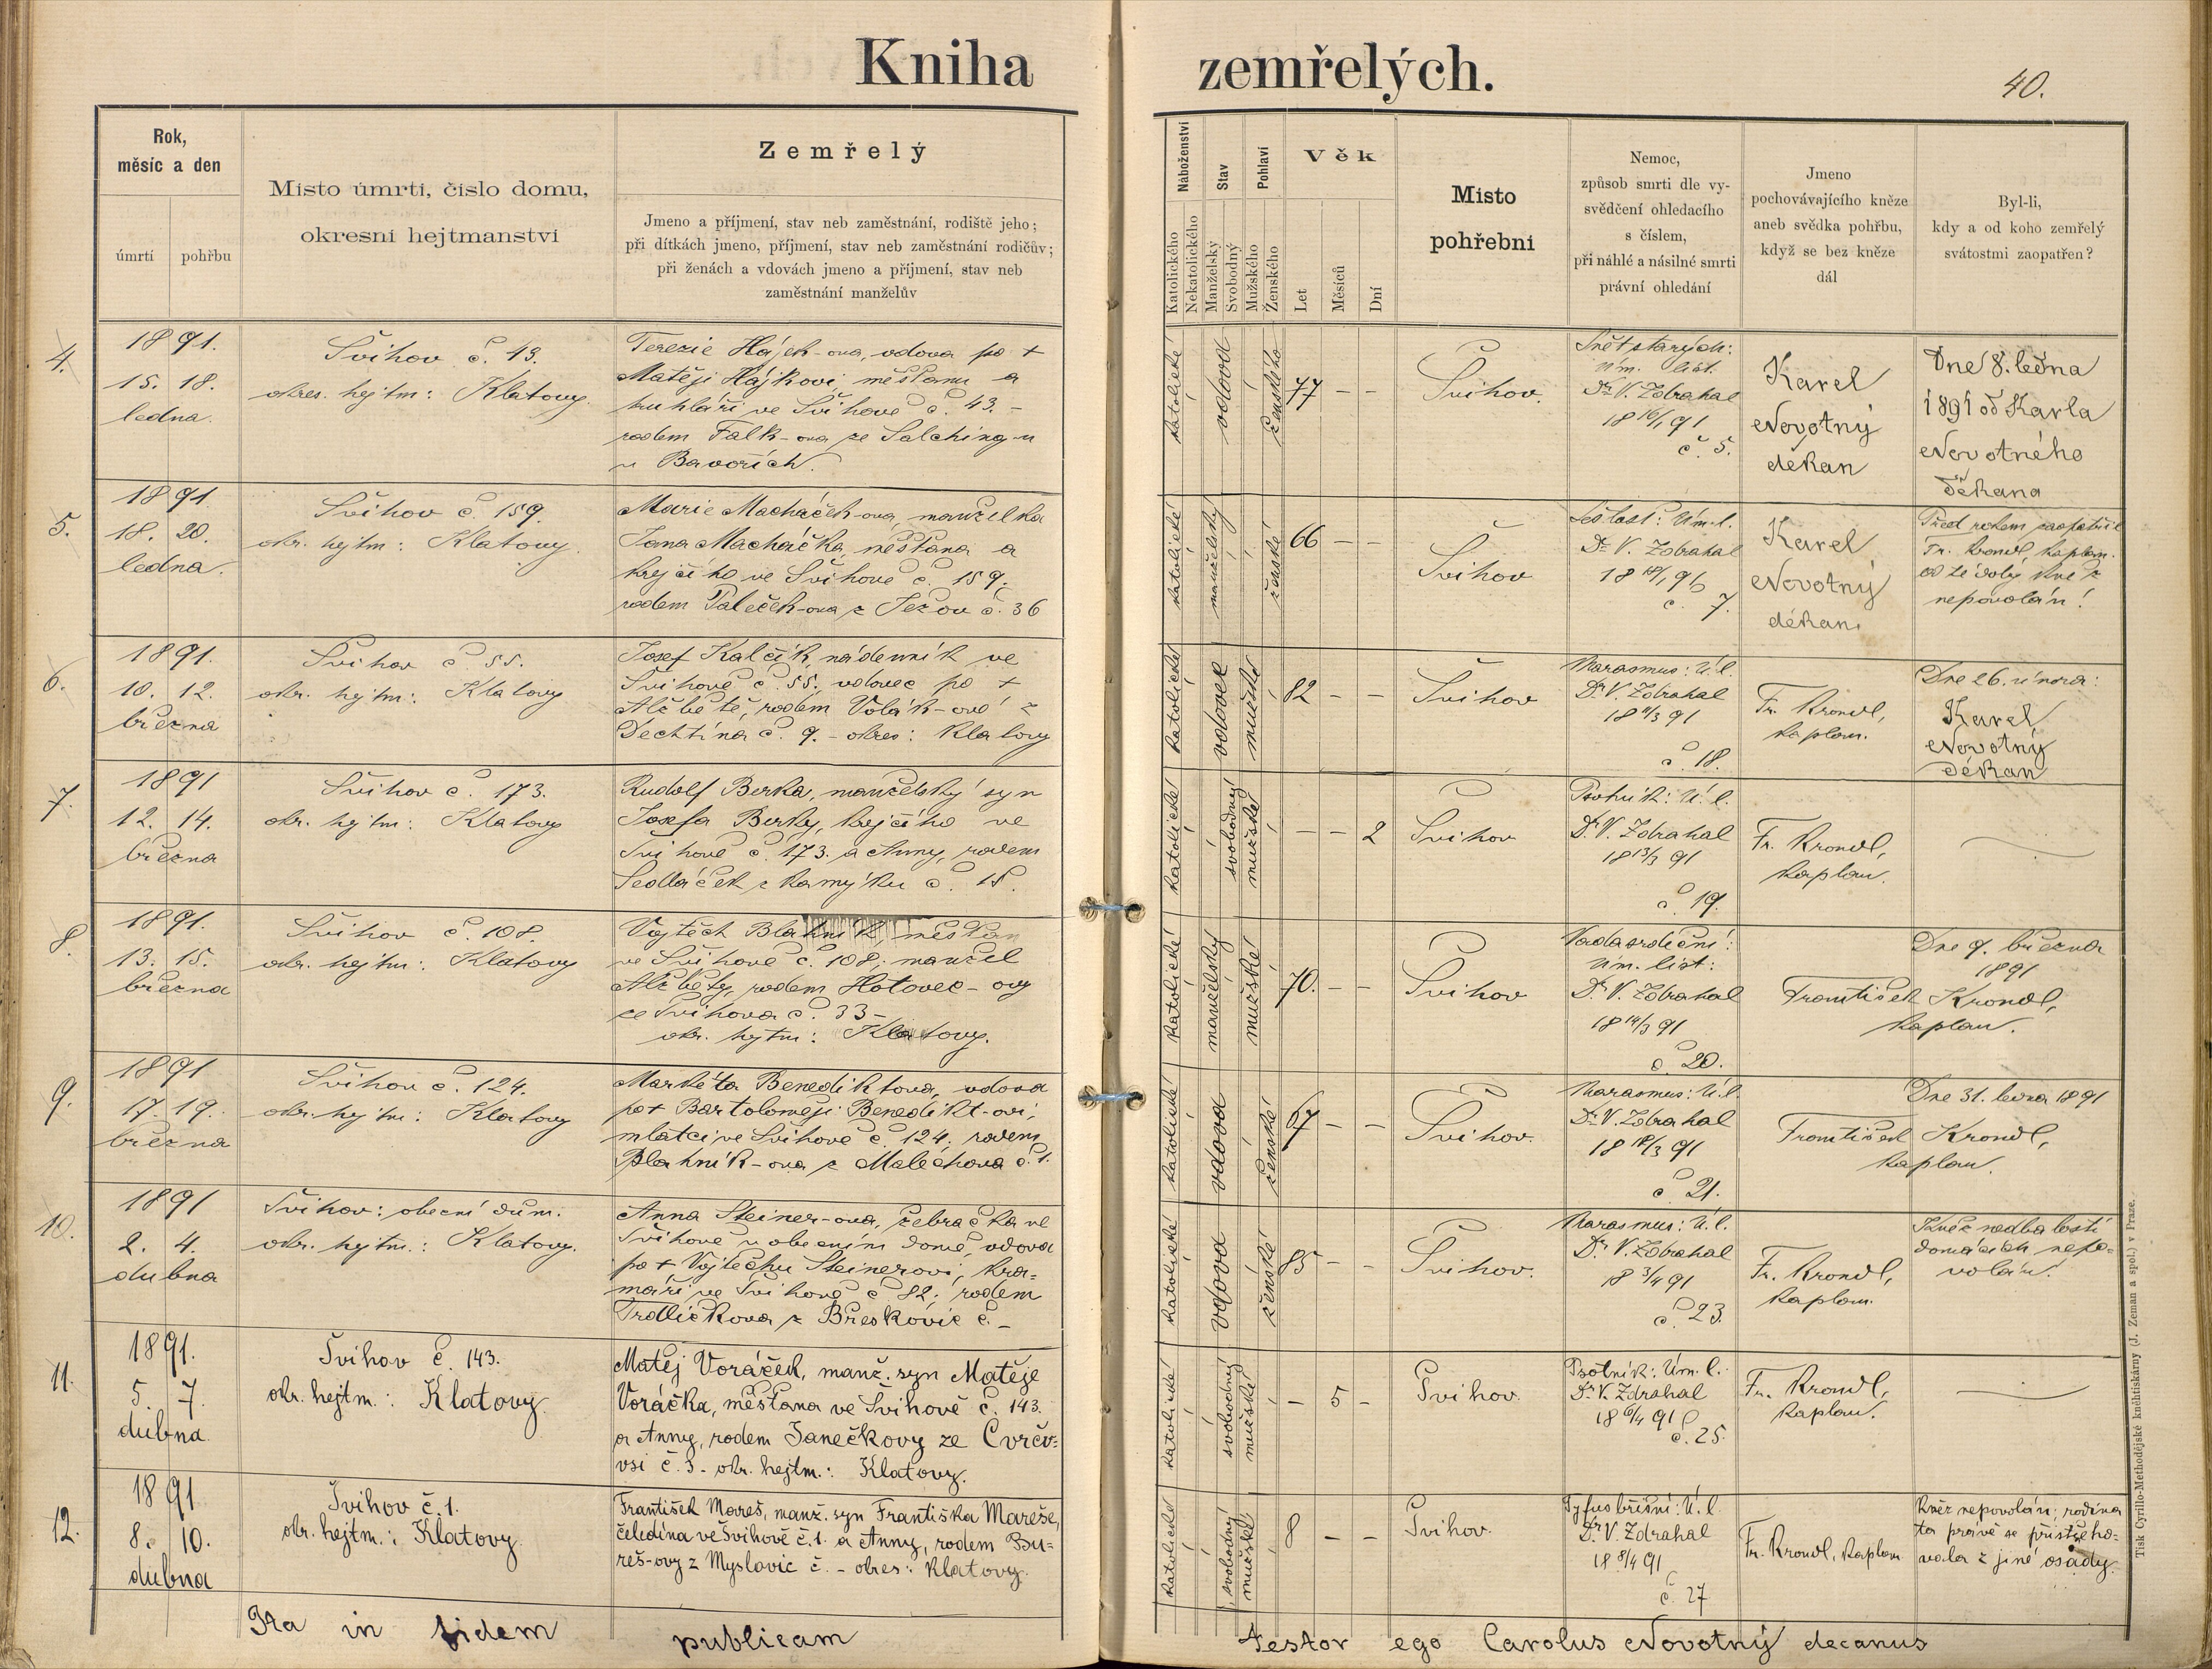 Kniha zemřelých.
40.
Rok,
měsíc a den
úmrtí
pohřbu
Místo úmrtí, číslo domu,
okresní hejtmanství
Zemřelý
Jmeno a příjmení, stav neb zaměstnání, rodiště jeho;
při dítkách jmeno, příjmení, stav neb zaměstnání rodičův;
při ženách a vdovách jmeno a příjmení, stav neb
zaměstnání manželův
Náboženství
Katolického
Nekatolického
Stav
Manželský
Svobodný
Pohlaví
Mužského
Ženského
Věk
Let
Měsíců
Dní
Místo
pohřební
Nemoc,
způsob smrti dle vy-
svědčení ohledacího
s číslem,
při náhlé a násilné smrti
právní ohledání
Jmeno
pochovávajícího kněze
aneb svědka pohřbu,
když se bez kněze
dál
Byl-li,
kdy a od koho zemřelý
svátostmi zaopatřen?
4.
1891.
15. 18.
ledna.
Švihov č. 43.
okres. hejtm: Klatovy.
Terezie Hájek-ova, vdova po +
Matěji Hájkovi, měšťanu a
truhláři ve Švihově č. 43. -
rodem Falk-ova ze Salching-u
v Bavořích.
katolické
vdova
ženského
77 - -
Švihov.
Sněť starých:
úm. list.
Dr. V. Zdrahal
18 16/1 91
č. 5.
Karel
Novotný
děkan
Dne 8. ledna
1891 od Karla
Novotného
děkana
5.
1891
18. 20.
ledna.
Švihov č. 159.
okr. hejtm: Klatovy.
Marie Macháček-ova, manželka
Jana Macháčka, měšťana a
krejčího ve Švihově č. 159;
rodem Paleček-ova z Ježov č. 36
katolické
manželský
ženské
66 - -
Švihov
Sešlost: Úm. l.
Dr. V. Zdrahal
18 18/1 91
č. 7.
Karel
Novotný
děkan.
Před rokem zaopatřil
Fr. Krondl, kaplan.
od té doby kněz
nepovolán!
6.
1891.
10. 12.
března
Švihov č. 55.
okr. hejtm: Klatovy
Josef Kalčík, nádenník ve
Švihově č. 55., vdovec po +
Alžbětě, rodem Volák-ové z
Dechtína č. 9. - okres: Klatovy
katolické
vdovec
mužské
82 - -
Švihov
Marasmus: Ú. l.
Dr. V. Zdrahal
18 11/3 91
č. 18.
Fr. Krondl,
kaplan.
Dne 26. února:
Karel
Novotný
děkan
7.
1891
12. 14.
března
Švihov č. 173.
okr. hejtm: Klatovy
Rudolf Berka, manželský syn
Josefa Berky, krejčího ve
Švihově č. 173. a Anny, rodem
Sedláček z Kamýku č. 15.
katolické
svobodný
mužské
- - 2
Švihov
Psotník: Ú. l.
Dr. V. Zdrahal
18 13/3 91
č. 19.
Fr. Krondl,
kaplan.
8.
1891.
13. 15.
března
Švihov č. 108.
okr. hejtm: Klatovy
Vojtěch Blahník, měšťan
ve Švihově č. 108; manžel
Alžběty, rodem Hotovec-ovy
ze Švihova č. 33 -
okr. hejtm: Klatovy.
katolické
manželský
mužské
70. - -
Švihov
Vada srdeční:
úm. list:
Dr. V. Zdrahal
18 14/3 91
č. 20.
Dne 9. března
1891
František Krondl,
kaplan.
9.
1891
17. 19.
března
Švihov č. 124.
okr. hejtm: Klatovy
Markéta Benediktova, vdova
po + Bartoloměji Benedikt-ovi,
mlatci ve Švihově č. 124. rodem
Blahník-ova z Malechova č. 1.
katolické
vdova
ženské
67 - -
Švihov.
Marasmus: Ú. l.
Dr. V. Zdrahal
18 18/3 91
č. 21.
Dne 31. ledna 1891
František Krondl,
kaplan.
10.
1891
2. 4.
dubna
Švihov: obecní dům.
okr. hejtm.: Klatovy.
Anna Steiner-ova, žebračka ve
Švihově v obecním domě, vdova
po + Vojtěchu Steinerovi, kra=
máři ve Švihově č. 82; rodem
Trdličkova z Břeskovic č. -
katolické
vdova
ženské
85 - -
Švihov.
Marasmus: Ú. l.
Dr. V. Zdrahal
18 3/4 91
č. 23.
Fr. Krondl,
kaplan.
Kněz nedbalostí
domácích nepo=
volán!
11.
1891.
5. 7.
dubna
Švihov č. 143.
okr. hejtm.: Klatovy.
Matěj Voráček, manž. syn Matěje
Voráčka, měšťana ve Švihově č. 143.
a Anny, rodem Janečkovy ze Cvrčo=
vsi č. 3. okr. hejtm.: Klatovy.
katolické
svobodný
mužské
- 5 -
Švihov.
Psotník: Úm. l.
Dr. V. Zdrahal
18 6/4 91
č. 25.
Fr. Krondl,
kaplan.
12.
1891
8. 10.
dubna
Švihov č. 1.
okr. hejtm.: Klatovy.
František Mareš, manž. syn Františka Mareše,
čeledína ve Švihově č. 1. a Anny, rodem Bu=
reš-ovy z Myslovic č. - okres: Klatovy.
katolické
svobodný
mužské
8 - -
Švihov.
Tyfus břišní: Ú. l.
Dr. V. Zdrahal
18 8/4 91
č. 27
Fr. Krondl, kaplan
Kněz nepovolán; rodina
ta právě se přistěho=
vala z jiné osady.
Ita in fidem publicam testor ego Carolus Novotný decanus
Tisk Cyrillo-Methodějské kněhtiskárny (J. Zeman a spol.) v Praze.